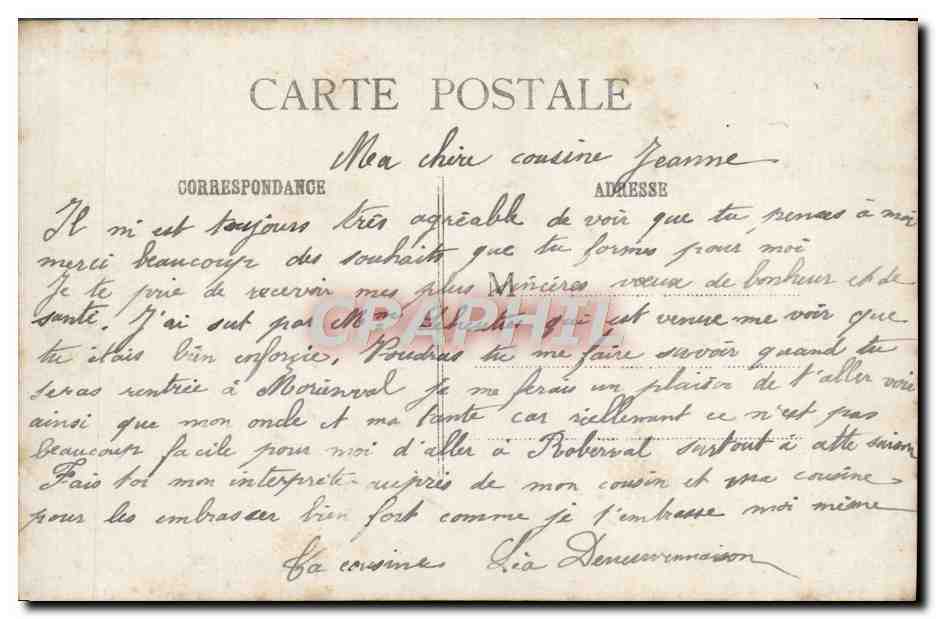 CARTE POSTALE
Ma chère cousine Jeanne
CORRESPONDANCE
ADRESSE
Il m'est toujours très agréable de voir que tu penses à moi
merci beaucoup des souhaits que tu formes pour moi
Je te prie de recevoir mes plus sincères vœux de bonheur et de
M
santé. J'ai sut par Mme qui est venue me voir que
CPAPHIL
tu étais bien enforçie, Voudras tu me faire savoir quand tu
seras rentrée à Morienval je me ferais un plaisir de t'aller voir
ainsi que mon oncle et ma tante car réellement ce n'est pas
beaucoup facile pour moi d'aller à Roberval surtout à cette saison
Fais toi mon interprète auprès de mon cousin et ma cousine
pour les embrasser bien fort comme je t'embrasse moi même
Ta cousine Léa